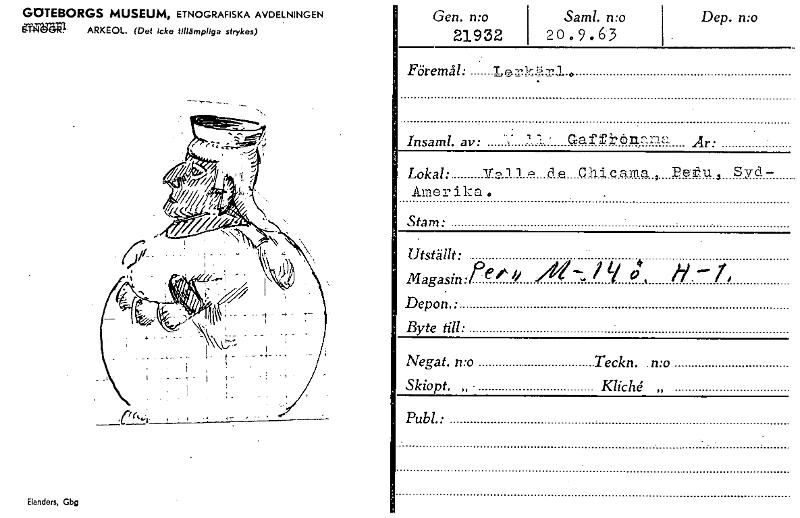 GÖTEBORGS MUSEUM, ETNOGRAFISKA AVDELNINGEN
ETNOGR. ARKEOL. (Det icke tillämpliga strykes)
Gen. n:o Saml. n:o Dep. n:o
21932 20.9.63
Föremål: Lerkärl.
Insaml. av: Gaffronana År:
Lokal: Valle de Chicama, Peru, Syd-
Amerika.
Stam:
Utställt:
Magasin: Peru M-14 ö. H-1.
Depon.:
Byte till:
Negat. n:o Teckn. n:o
Skiopt. „ Kliché „
Publ.:
Elanders, Gbg